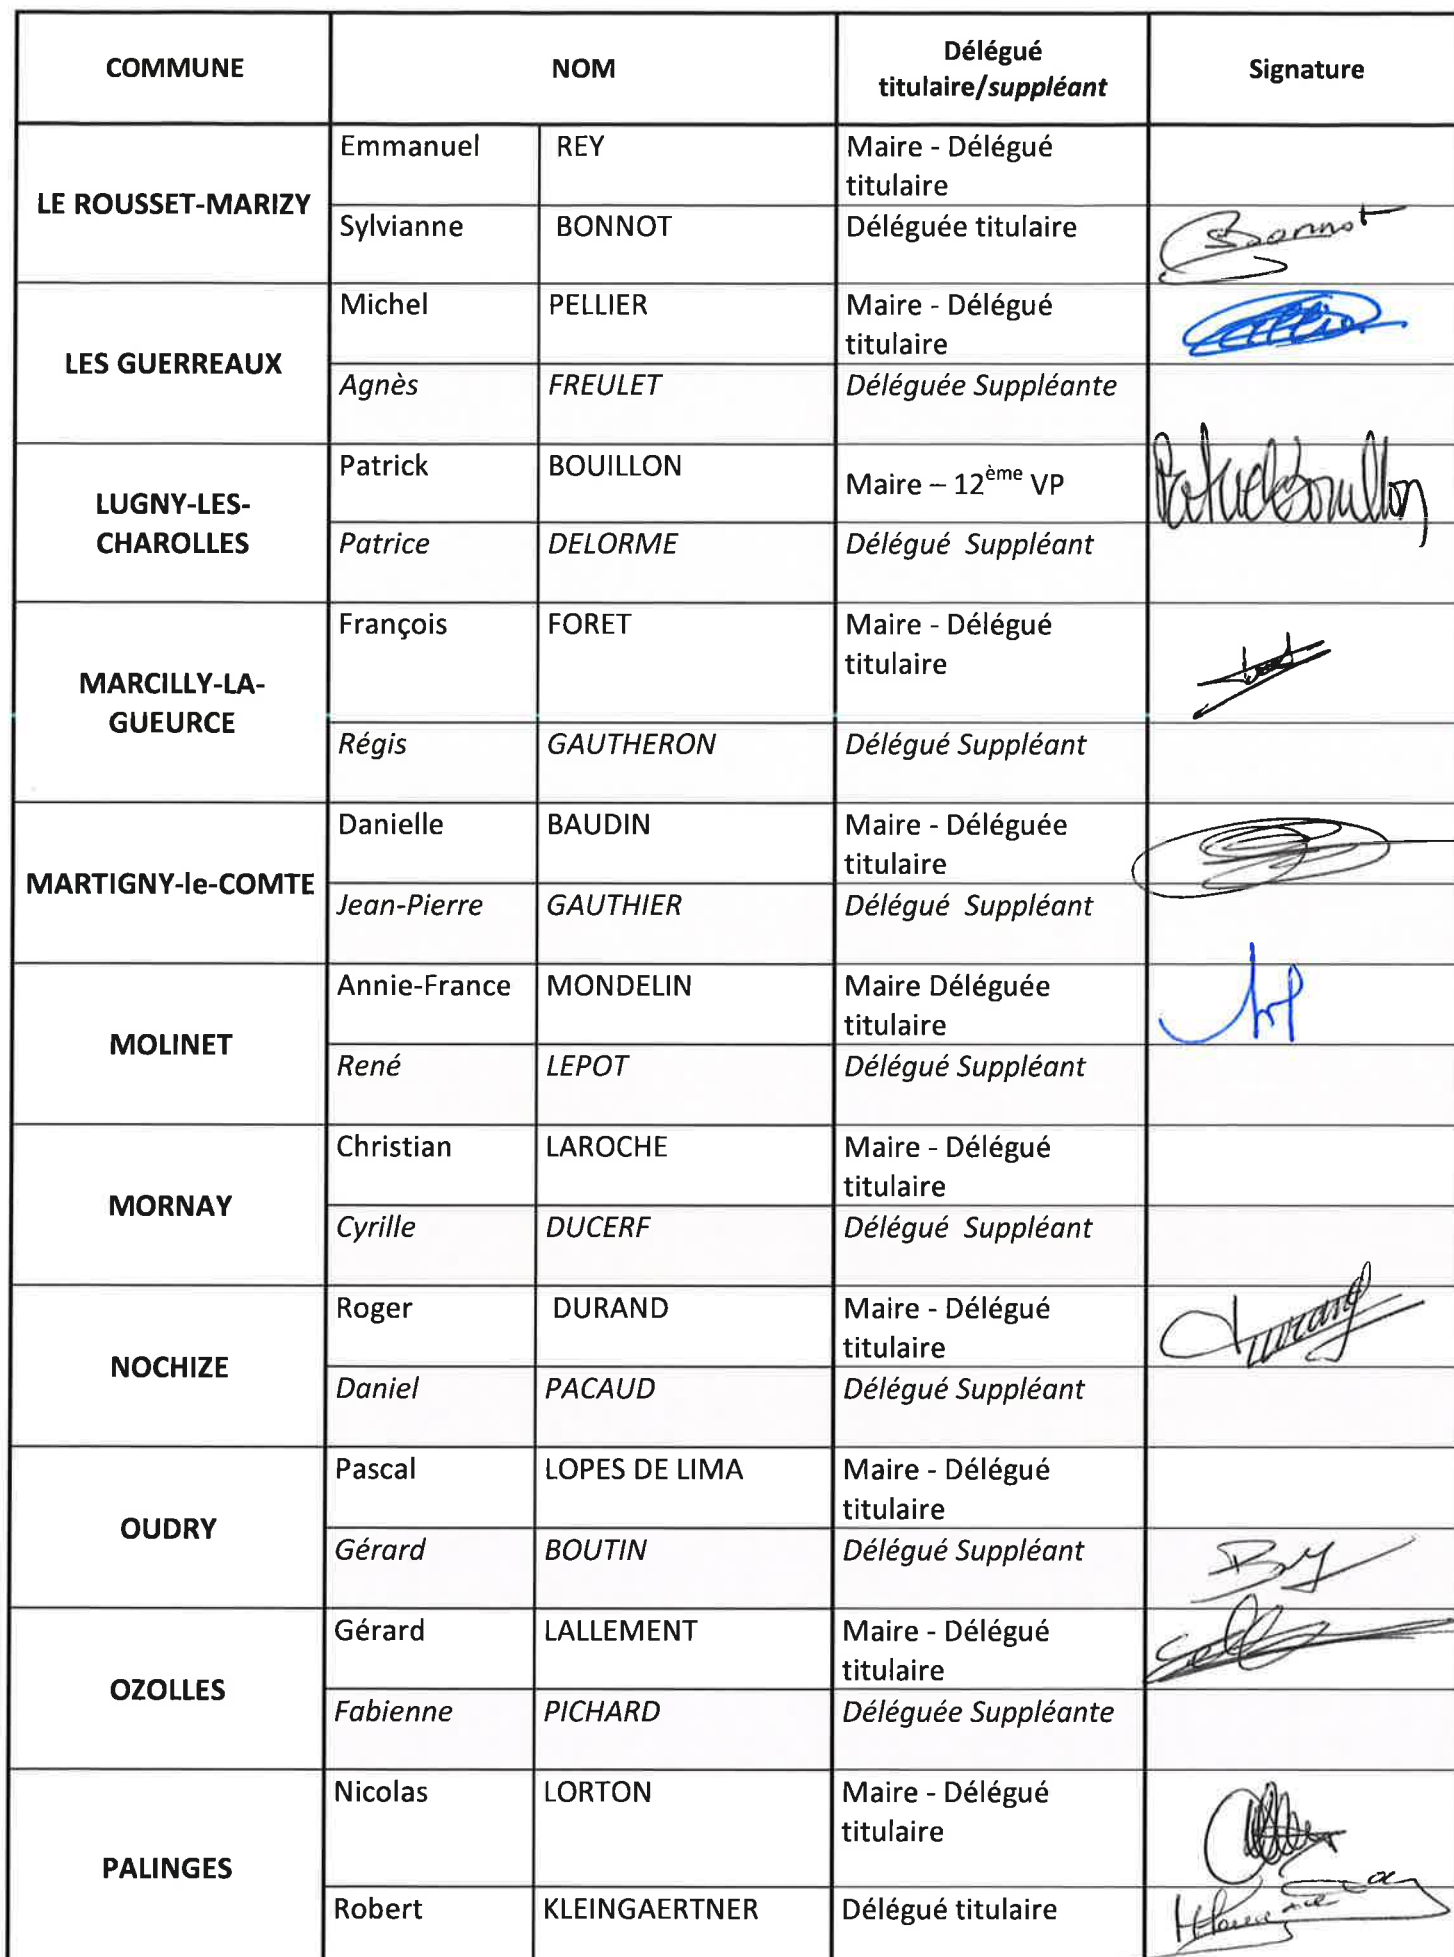 COMMUNE NOM Délégué titulaire/suppléant Signature
LE ROUSSET-MARIZY
Emmanuel REY Maire - Délégué
titulaire
Sylvianne BONNOT Déléguée titulaire Bonnot
LES GUERREAUX
Michel PELLIER Maire - Délégué
titulaire
Agnès FREULET Déléguée Suppléante
LUGNY-LES-
CHAROLLES
Patrick BOUILLON Maire – 12ème VP Patrick Bouillon
Patrice DELORME Délégué Suppléant
MARCILLY-LA-
GUEURCE
François FORET Maire - Délégué
titulaire
Régis GAUTHERON Délégué Suppléant
MARTIGNY-le-COMTE
Danielle BAUDIN Maire - Déléguée
titulaire
Jean-Pierre GAUTHIER Délégué Suppléant
MOLINET
Annie-France MONDELIN Maire Déléguée
titulaire
René LEPOT Délégué Suppléant
MORNAY
Christian LAROCHE Maire - Délégué
titulaire
Cyrille DUCERF Délégué Suppléant
NOCHIZE
Roger DURAND Maire - Délégué
titulaire Durand
Daniel PACAUD Délégué Suppléant
OUDRY
Pascal LOPES DE LIMA Maire - Délégué
titulaire
Gérard BOUTIN Délégué Suppléant
OZOLLES
Gérard LALLEMENT Maire - Délégué
titulaire
Fabienne PICHARD Déléguée Suppléante
PALINGES
Nicolas LORTON Maire - Délégué
titulaire
Robert KLEINGAERTNER Délégué titulaire